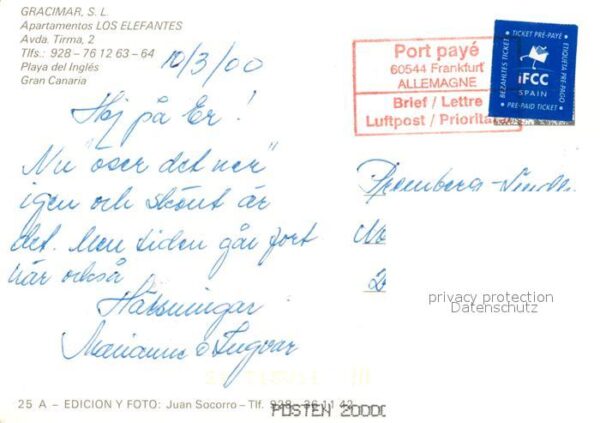 GRACIMAR, S. L.
Apartamentos LOS ELEFANTES
Avda. Tirma, 2
Tlfs.: 928 - 76 12 63 - 64
Playa del Inglés
Gran Canaria
10/3/00
Hej på Er!
Nu öser det ner"
igen och skönt är
det. Men tiden går fort
här också
Hälsningar
Marianne o Ingvar
Port payé
60544 Frankfurt
ALLEMAGNE
Brief / Lettre
Luftpost / Prioritaire
TICKET PRÉ-PAYÉ
BEZAHLTES TICKET
ETIQUETA PRE-PAGO
iFCC
SPAIN
PRE-PAID TICKET
privacy protection
Datenschutz
25 A - EDICION Y FOTO: Juan Socorro - Tlf. 928 - 36 11 42
POSTEN 20000